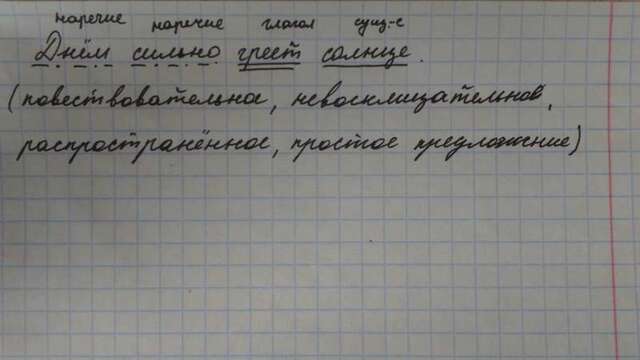 наречие наречие глагол сущ-е
Днём сильно греет солнце.
(повествовательное, невосклицательное,
распространённое, простое предложение)